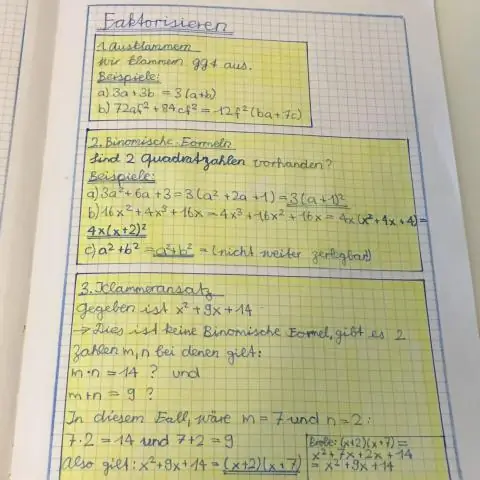 Faktorisieren
1. Ausklammern
Wir klammern ggT aus.
Beispiele:
a) 3a + 3b = 3(a+b)
b) 72af² + 84cf² = 12f²(6a+7c)
2. Binomische Formeln
Sind 2 Quadratzahlen vorhanden?
Beispiele:
a) 3a² + 6a + 3 = 3(a² + 2a + 1) = 3(a+1)²
b) 16x² + 4x³ + 16x = 4x³ + 16x² + 16x = 4x(x² + 4x + 4) =
4x(x+2)²
c) a² + b² = a² + b² = (nicht weiter zerlegbar)
3. Klammeransatz
Gegeben ist x² + 9x + 14
→ Dies ist keine Binomische Formel, gibt es 2
Zahlen m, n bei denen gilt:
m · n = 14 ? und
m + n = 9 ?
In diesem Fall, wäre m = 7 und n = 2:
7 · 2 = 14 und 7 + 2 = 9
Also gilt: x² + 9x + 14 = (x+2)(x+7)
Probe: (x+2)(x+7) =
x² + 7x + 2x + 14
= x² + 9x + 14